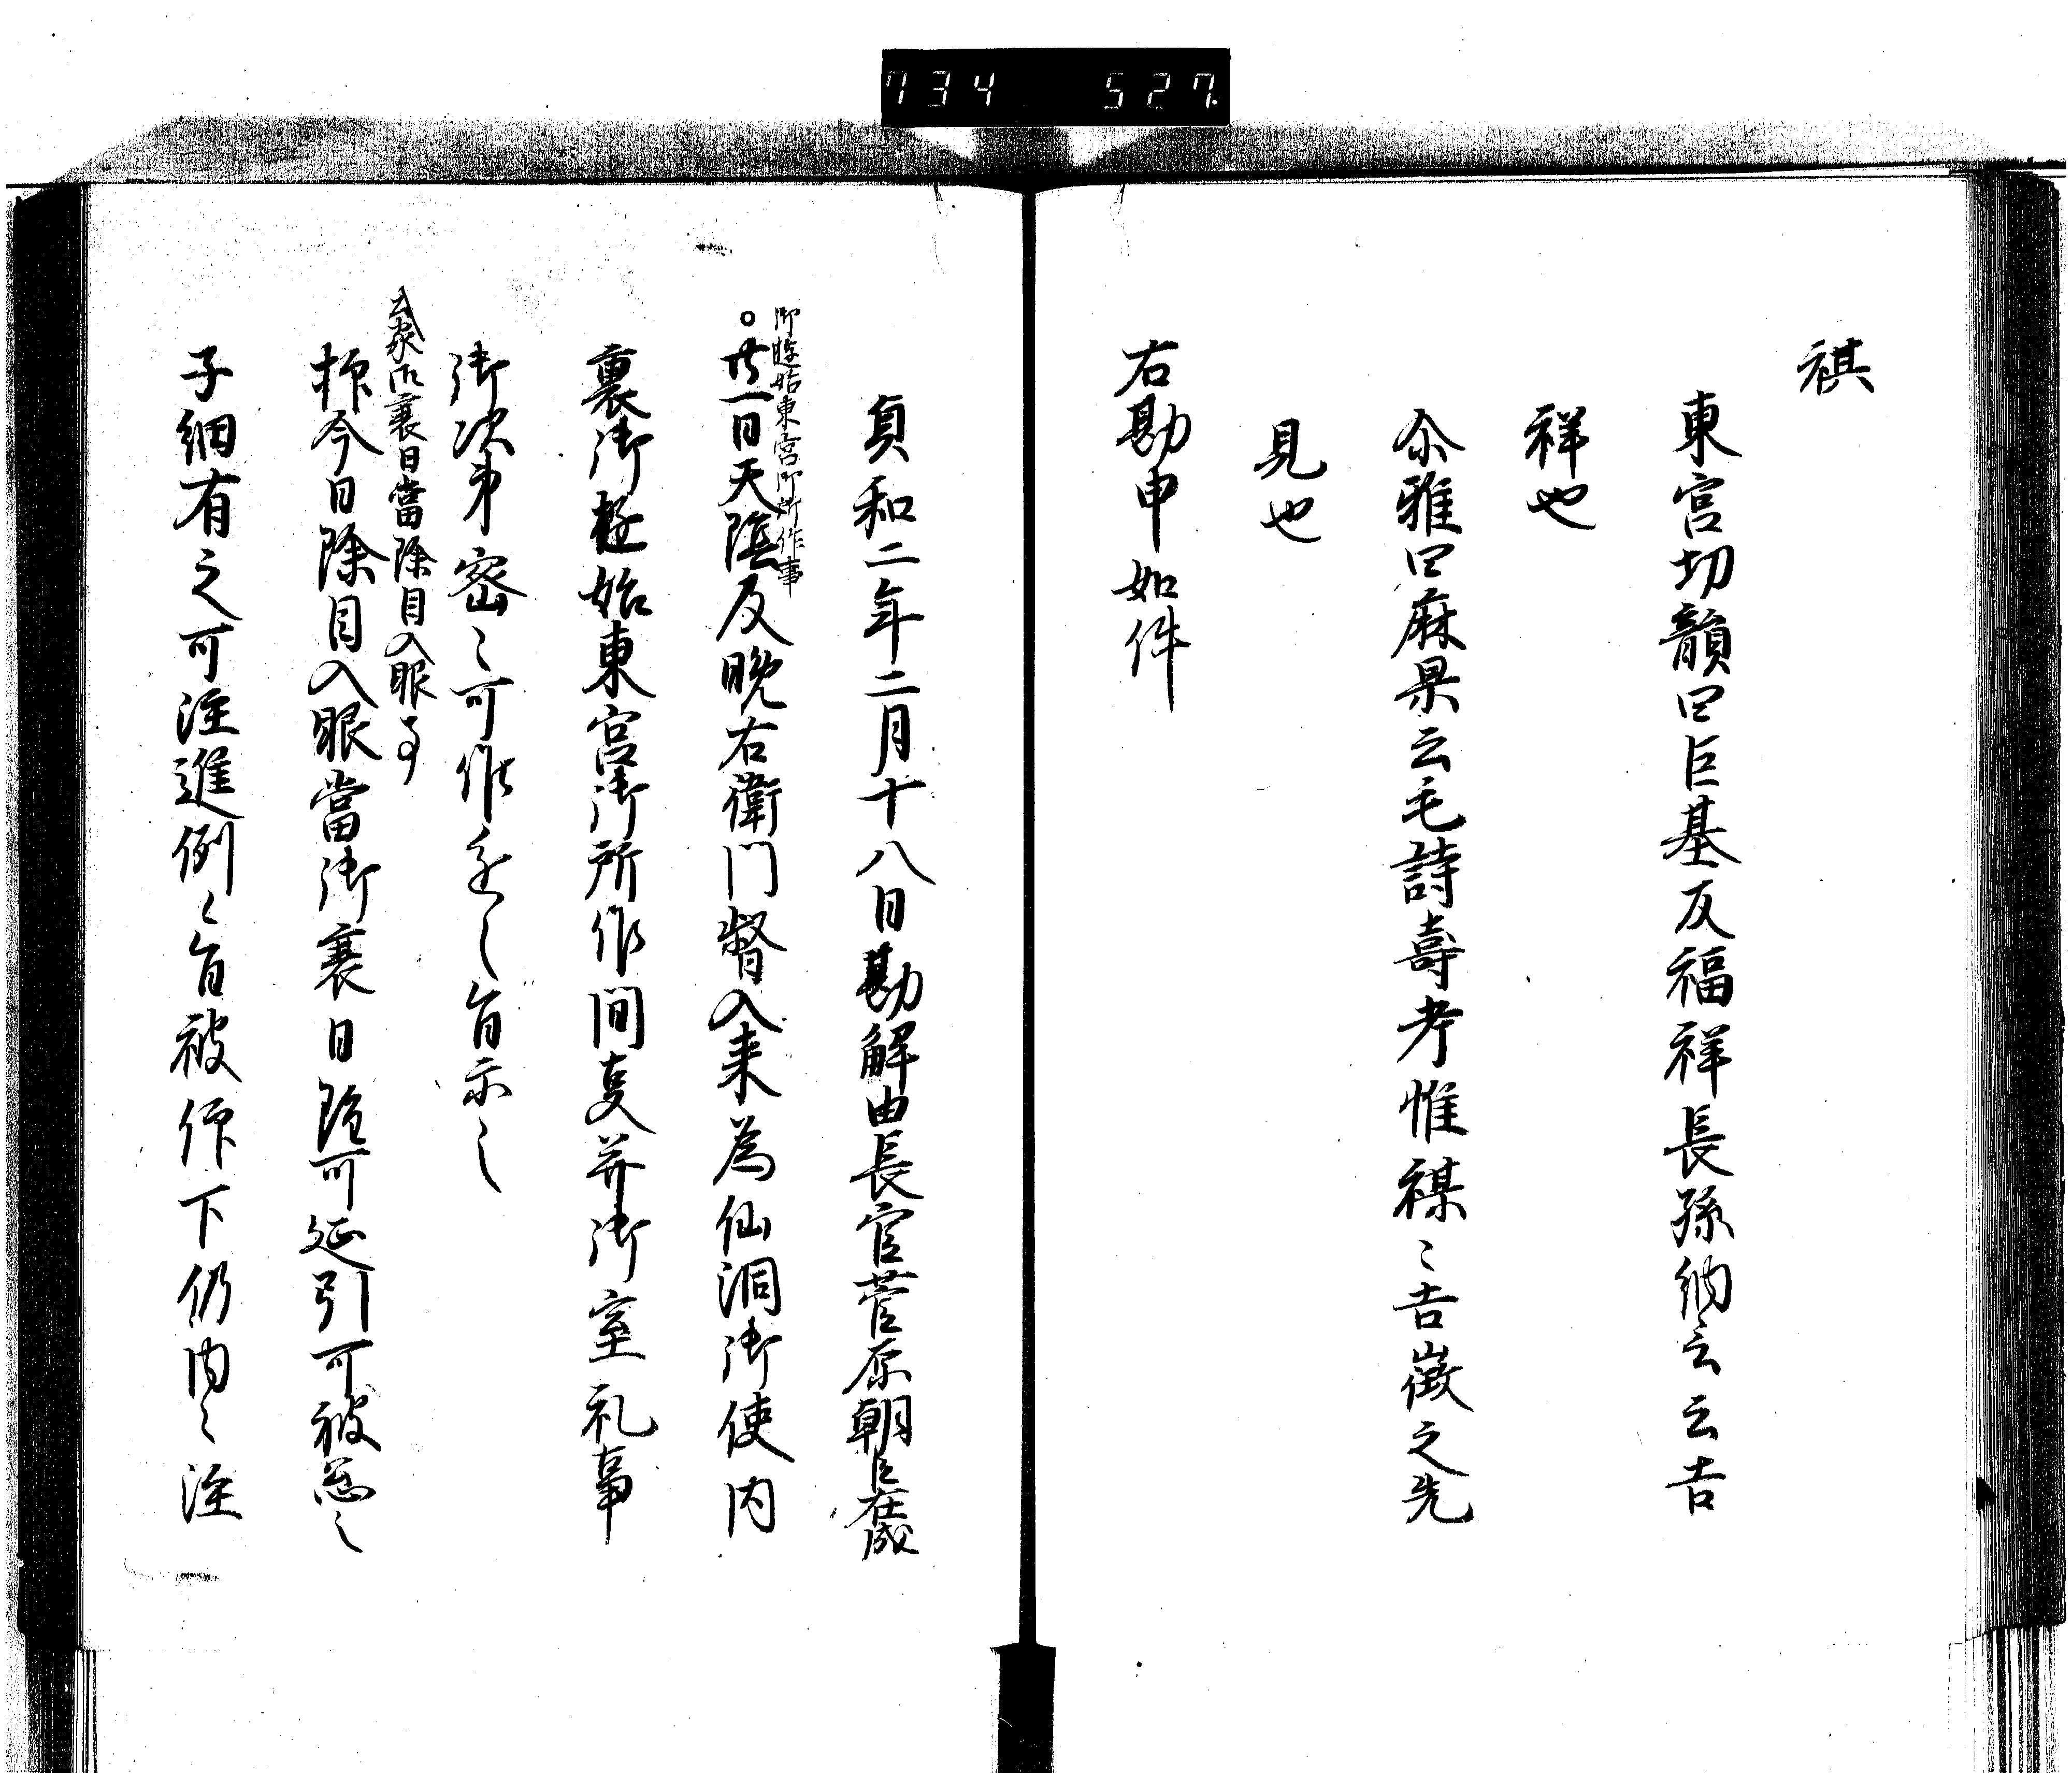 734 527
祺
東宮切韻曰巨基反福祥長孫納言云吉
祥也
尒雅曰麻杲云毛詩壽考惟祺〻吉徴之先
見也
右勘申如件
貞和二年二月十八日勘解由長官菅原朝臣在成
御遊始東宮御所作事
。廿一日天陰及晩右衛門督入来為仙洞御使内
裏御遊始東宮御所作間事并御室礼事
御次第密〻可作進之旨示之
御衰日當除目入眼事
抑今日除目入眼當御衰日隨可延引可被忌之
子細有之可注進例之旨被仰下仍内〻注